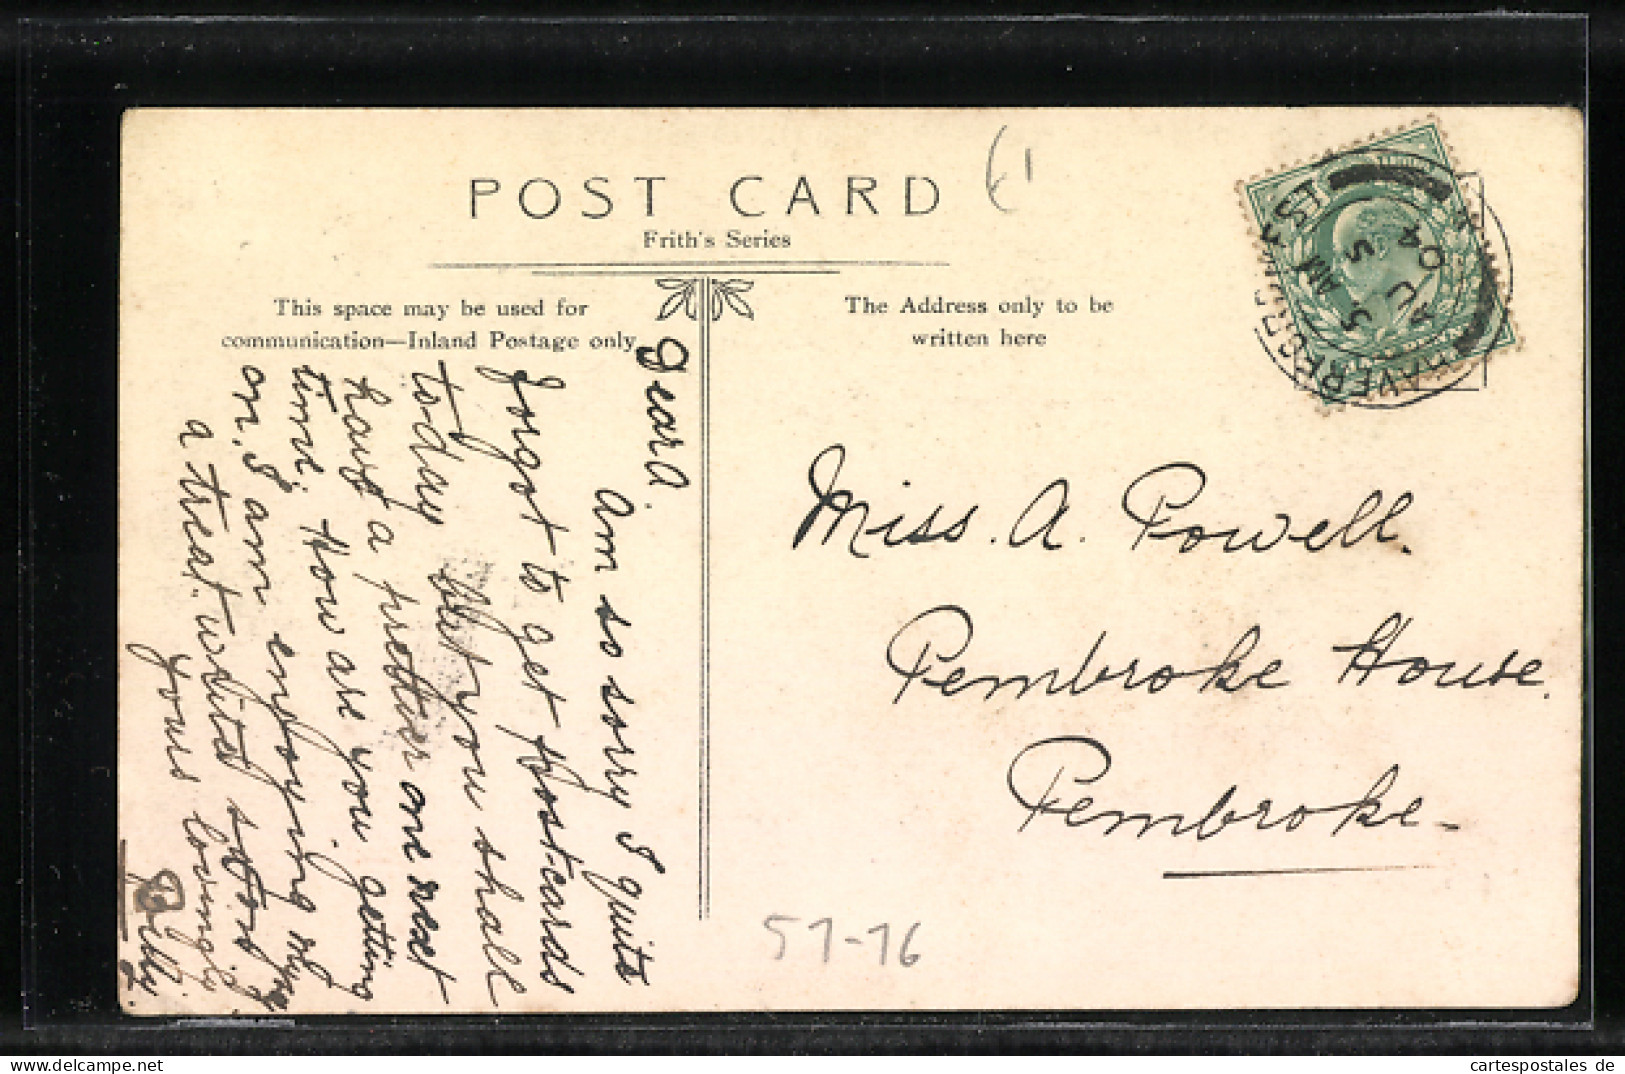 POST CARD
Frith's Series
This space may be used for
communication—Inland Postage only
The Address only to be
written here
HAVERFORDWEST
5 AM
AU 5
04
Dear A.
am so sorry I quite
forgot to get postcards
to-day but you shall
have a prettier one next
time. How are you getting
on, I am enjoying myself
a treat. writes
yours lovingly
Miss. A. Powell.
Pembroke House.
Pembroke-
51-16
cartespostales de